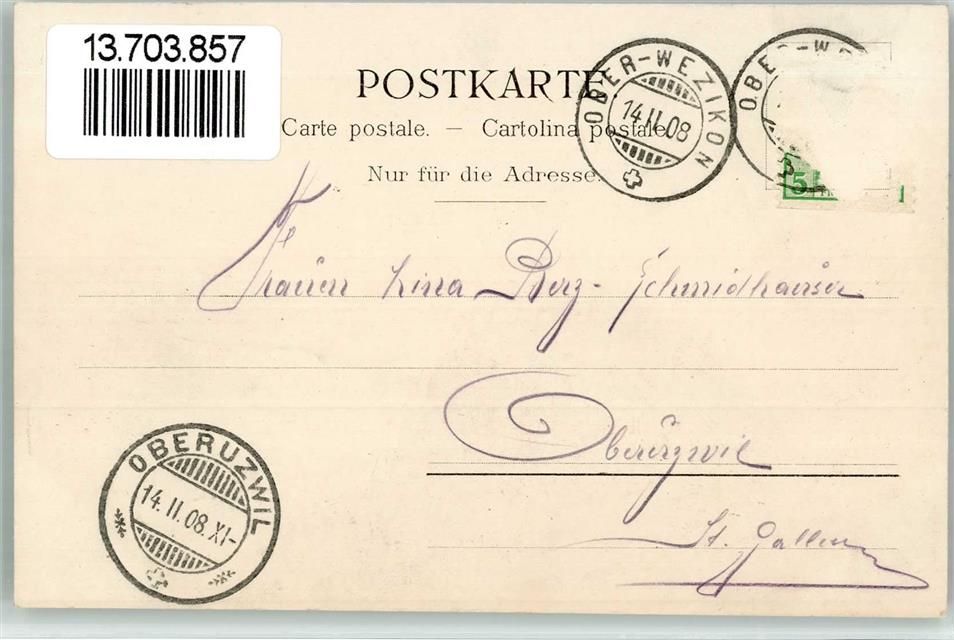 13.703.857
POSTKARTE
Carte postale. — Cartolina postale.
Nur für die Adresse.
OBER-WEZIKON
14.II.08
OBER-WE
5
Frauen Lina Berg-Schmidhauser
Oberuzwil
St. Gallen
OBERUZWIL
14.II.08.XI-